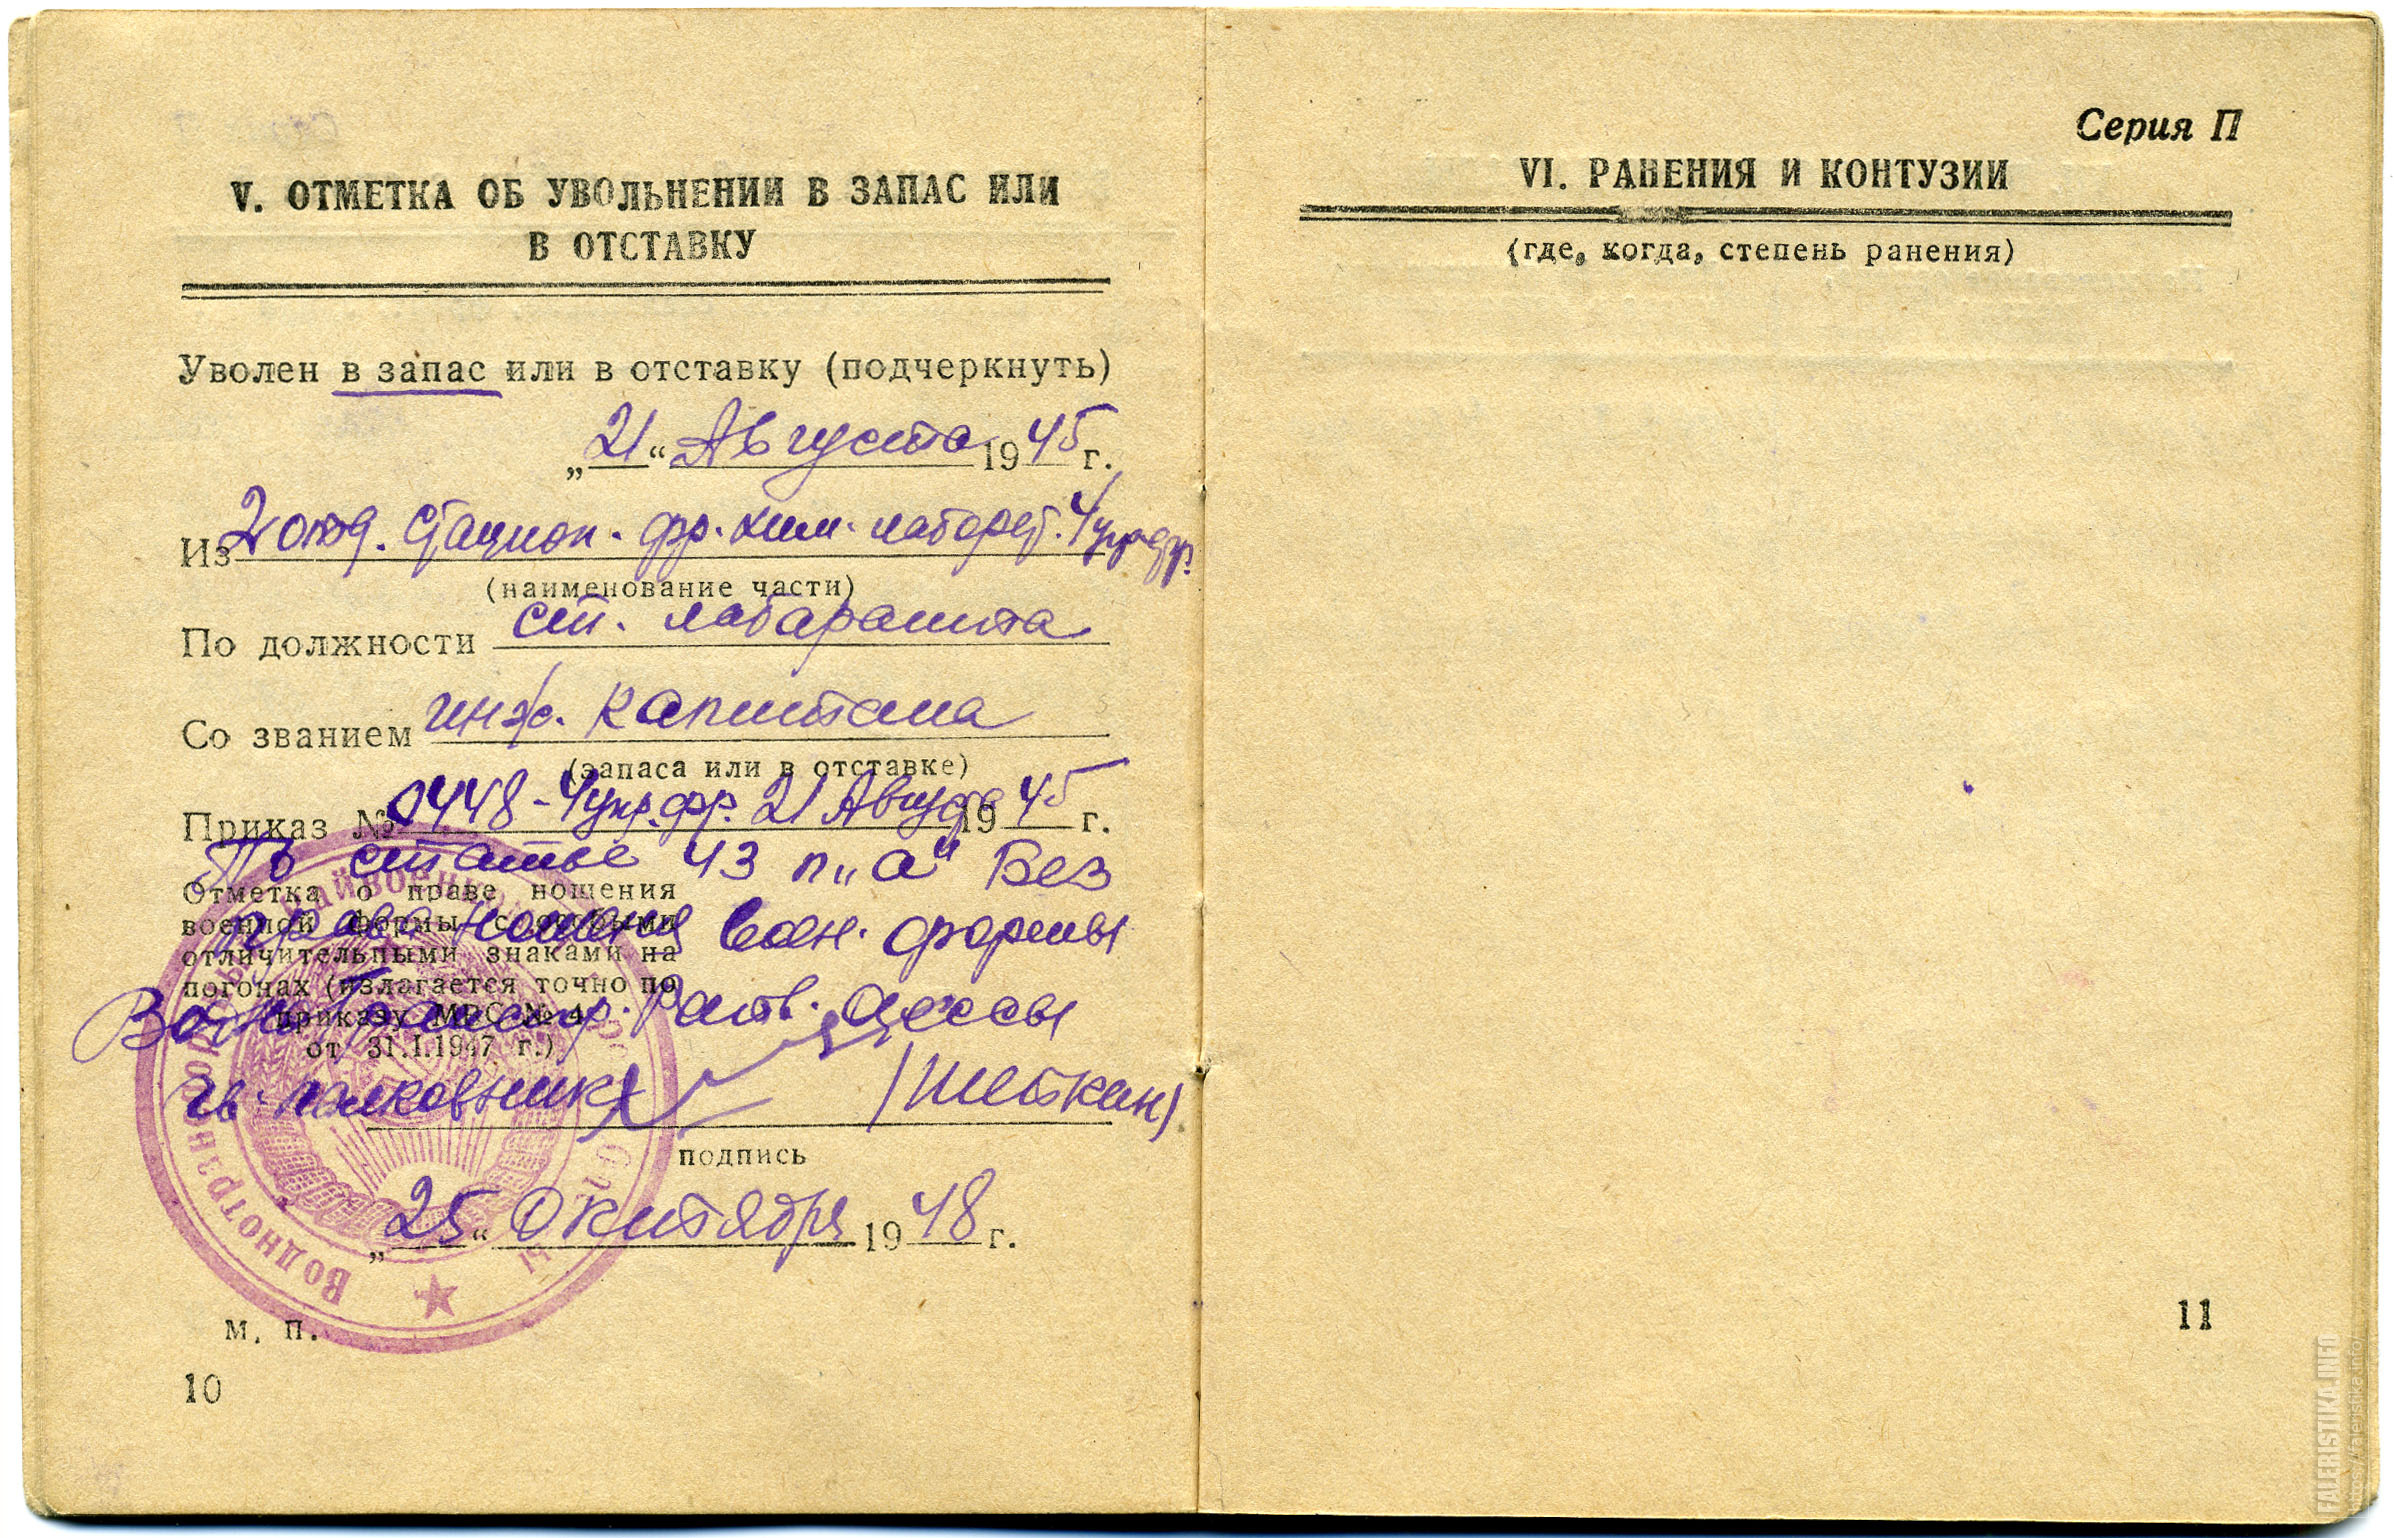 V. ОТМЕТКА ОБ УВОЛЬНЕНИИ В ЗАПАС ИЛИ
В ОТСТАВКУ
Уволен в запас или в отставку (подчеркнуть)
„21“ Августа 1945 г.
Из 2 отд. стацион. фр. хим. лаборат. 4 укр. фр.
(наименование части)
По должности ст. лаборанта
Со званием инж. капитана
(запаса или в отставке)
Приказ № 0448 - 4 укр. фр. 21 Августа 1945 г.
По статье 43 п „а“ Без
Отметка о праве ношения
военной формы с особыми
отличительными знаками на
погонах (излагается точно по
приказу МВС № 4
от 31.I.1947 г.)
права ношения воен. формы
Одессы
полковник (Шеткин)
подпись
„25“ Октября 1948 г.
Воднотранспортный райвоенкомат
м. п.
10
Серия П
VI. РАНЕНИЯ И КОНТУЗИИ
(где, когда, степень ранения)
11
FALERISTIKA.INFO
https://faleristika.info/